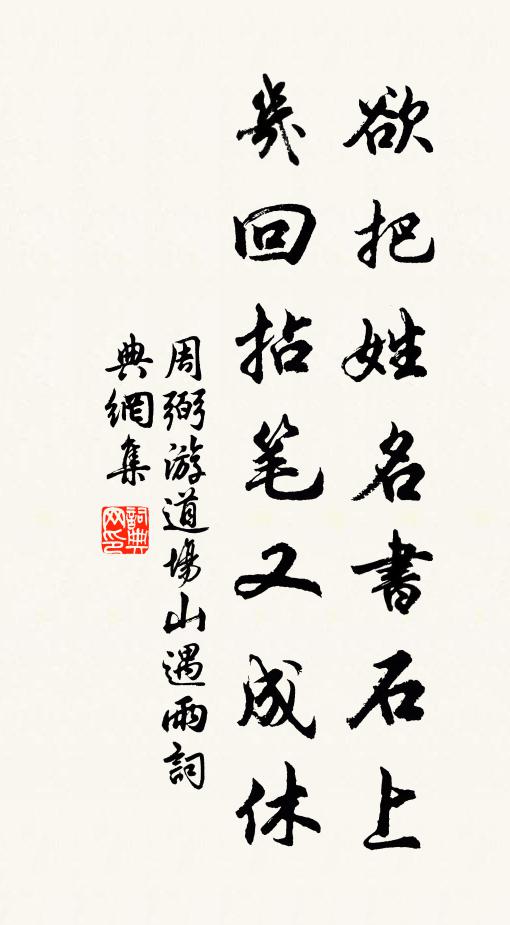 欲把姓名書石上
幾回拈笔又成休
周弼游道場山遇雨詞
典網集
詞典网印